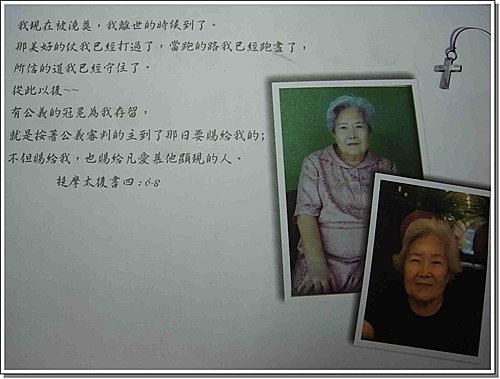 我現在被澆奠，我離世的時候到了。
那美好的仗我已經打過了，當跑的路我已經跑盡了，
所信的道我已經守住了。
從此以後~~
有公義的冠冕為我存留，
就是按著公義審判的主到了那日要賜給我的;
不但賜給我，也賜給凡愛慕他顯現的人。
提摩太後書四:6-8